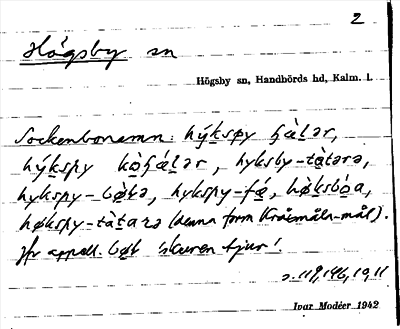 2
Högsby sn
Högsby sn, Handbörds hd, Kalm. l.
Sockenbonamn: hýkspy ɧὰlər,
hýkspy kòɧálər, hyksby-tàtərə,
hykspy-bøtə, hykspy-fǽ, høksbòa,
høkspy-tàtarə (denna form Kråsmåla-mål).
Jfr appell. bøt 'skuren tjur'.
Ivar Modéer 1942